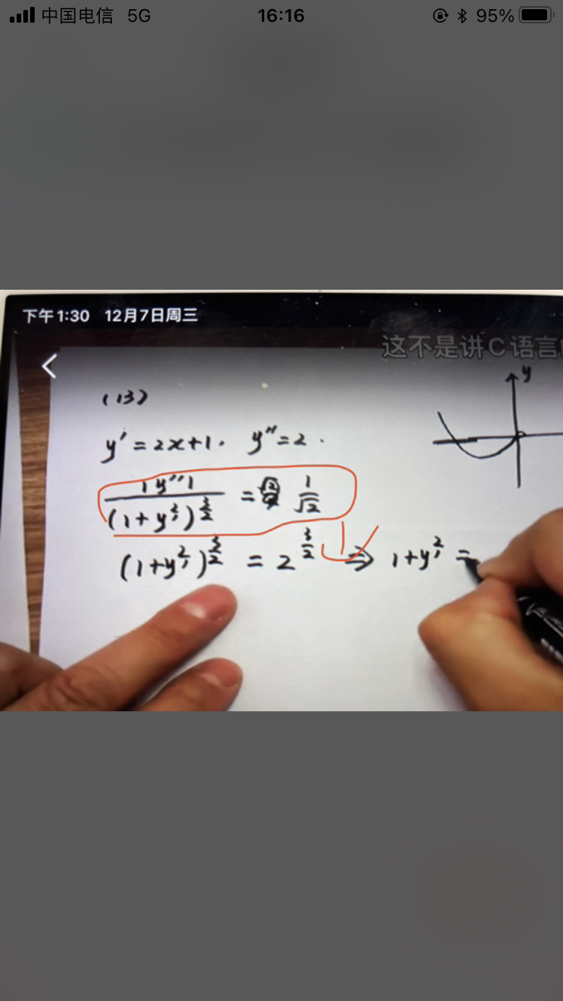 中国电信 5G 16:16 95%
下午1:30 12月7日周三
这不是讲C语言
(13)
y
y' = 2x+1. y''=2.
|y''| / (1+y'²)^(3/2) = 1/√2
(1+y'²)^(3/2) = 2^(3/2) ⇒ 1+y'² =